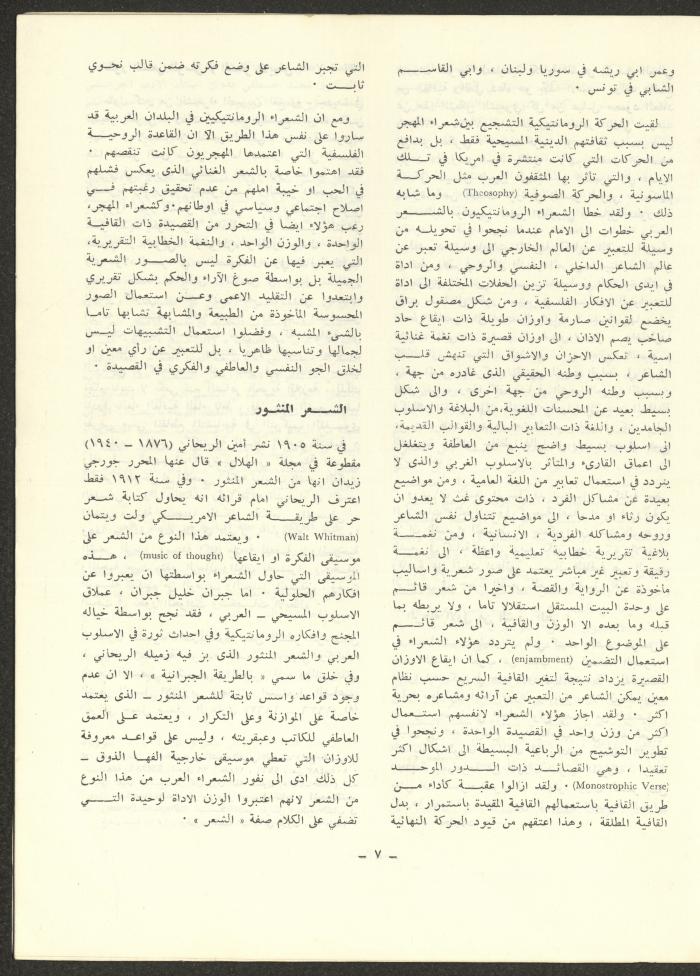 وعمر ابي ريشه في سوريا ولبنان ، وابي القاسم
الشابي في تونس ·
لقيت الحركة الرومانتيكية التشجيع بين شعراء المهجر
ليس بسبب ثقافتهم الدينية المسيحية فقط ، بل بدافع
من الحركات التي كانت منتشرة في امريكا في تلك
الايام ، والتي تأثر بها المثقفون العرب مثل الحركة
الماسونية ، والحركة الصوفية (Theosophy) وما شابه
ذلك · ولقد خطا الشعراء الرومانتيكيون بالشعر
العربي خطوات الى الامام عندما نجحوا في تحويله من
وسيلة للتعبير عن العالم الخارجي الى وسيلة تعبر عن
عالم الشاعر الداخلي ، النفسي والروحي ، ومن اداة
في ايدى الحكام ووسيلة تزين الحفلات المختلفة الى اداة
للتعبير عن الافكار الفلسفية ، ومن شكل مصقول براق
يخضع لقوانين صارمة واوزان طويلة ذات ايقاع حاد
صاخب يصم الاذان ، الى اوزان قصيرة ذات نغمة غنائية
اسية ، تعكس الاحزان والاشواق التي تنهش قلب
الشاعر ، بسبب وطنه الحقيقي الذى غادره من جهة ،
وبسبب وطنه الروحي من جهة اخرى ، والى شكل
بسيط بعيد عن المحسنات اللغوية،من البلاغة والاسلوب
الجامدين ، واللغة ذات التعابير البالية والقوالب القديمة،
الى اسلوب بسيط واضح ينبع من العاطفة ويتغلغل
الى اعماق القارىء والمتأثر بالاسلوب الغربي والذى لا
يتردد في استعمال تعابير من اللغة العامية ، ومن مواضيع
بعيدة عن مشاكل الفرد ، ذات محتوى غث لا يعدو ان
يكون رثاء او مدحا ، الى مواضيع تتناول نفس الشاعر
وروحه ومشاكله الفردية ، الانسانية ، ومن نغمة
بلاغية تقريرية خطابية تعليمية واعظة ، الى نغمة
رقيقة وتعبير غير مباشر يعتمد على صور شعرية واساليب
ماخوذة عن الرواية والقصة ، واخيرا من شعر قائم
على وحدة البيت المستقل استقلالا تاما ، ولا يربطه بما
قبله وما بعده الا الوزن والقافية ، الى شعر قائم
على الموضوع الواحد · ولم يتردد هؤلاء الشعراء في
استعمال التضمين (enjambment) ، كما ان ايقاع الاوزان
القصيرة يزداد نتيجة لتغير القافية السريع حسب نظام
معين يمكن الشاعر من التعبير عن آرائه ومشاعره بحرية
اكثر · ولقد اجاز هؤلاء الشعراء لانفسهم استعمال
اكثر من وزن واحد في القصيدة الواحدة ، ونجحوا في
تطوير التوشيح من الرباعية البسيطة الى اشكال اكثر
تعقيدا ، وهي القصائد ذات الدور الموحد
(Monostrophic Verse) · ولقد ازالوا عقبة كأداء من
طريق القافية باستعمالهم القافية المقيدة باستمرار ، بدل
القافية المطلقة ، وهذا اعتقهم من قيود الحركة النهائية
التي تجبر الشاعر على وضع فكرته ضمن قالب نحوي
ثابت ·
ومع ان الشعراء الرومانتيكيين في البلدان العربية قد
ساروا على نفس هذا الطريق الا ان القاعدة الروحية
الفلسفية التي اعتمدها المهجريون كانت تنقصهم ·
فقد اهتموا خاصة بالشعر الغنائي الذى يعكس فشلهم
في الحب او خيبة املهم من عدم تحقيق رغبتهم في
اصلاح اجتماعي وسياسي في اوطانهم·وكشعراء المهجر،
رغب هؤلاء ايضا في التحرر من القصيدة ذات القافية
الواحدة ، والوزن الواحد ، والنغمة الخطابية التقريرية،
التي يعبر فيها عن الفكرة ليس بالصور الشعرية
الجميلة بل بواسطة صوغ الآراء والحكم بشكل تقريري
وابتعدوا عن التقليد الاعمى وعن استعمال الصور
المحسوسة الماخوذة من الطبيعة والمشابهة تشابها تاما
بالشىء المشبه ، وفضلوا استعمال التشبيهات ليس
لجمالها وتناسبها ظاهريا ، بل للتعبير عن رأي معين او
لخلق الجو النفسي والعاطفي والفكري في القصيدة ·
الشعر المنثور
في سنة ١٩٠٥ نشر أمين الريحاني (١٨٧٦ – ١٩٤٠)
مقطوعة في مجلة « الهلال » قال عنها المحرر جورجي
زيدان انها من الشعر المنثور · وفي سنة ١٩١٢ فقط
اعترف الريحاني امام قرائه انه يحاول كتابة شعر
حر على طريقة الشاعر الامريكي ولت ويتمان
(Walt Whitman) · ويعتمد هذا النوع من الشعر على
موسيقى الفكرة او ايقاعها (music of thought) ، هذه
الموسيقى التي حاول الشعراء بواسطتها ان يعبروا عن
افكارهم الحلولية · اما جبران خليل جبران ، عملاق
الاسلوب المسيحي – العربي ، فقد نجح بواسطة خياله
المجنح وافكاره الرومانتيكية وفي احداث ثورة في الاسلوب
العربي والشعر المنثور الذى بز فيه زميله الريحاني ،
وفي خلق ما سمي « بالطريقة الجبرانية » ، الا ان عدم
وجود قواعد واسس ثابتة للشعر المنثور – الذى يعتمد
خاصة على الموازنة وعلى التكرار ، ويعتمد على العمق
العاطفي للكاتب وعبقريته ، وليس على قواعد معروفة
للاوزان التي تعطي موسيقى خارجية الفها الذوق –
كل ذلك ادى الى نفور الشعراء العرب من هذا النوع
من الشعر لانهم اعتبروا الوزن الاداة لوحيدة التي
تضفي على الكلام صفة « الشعر » ·
– ٧ –